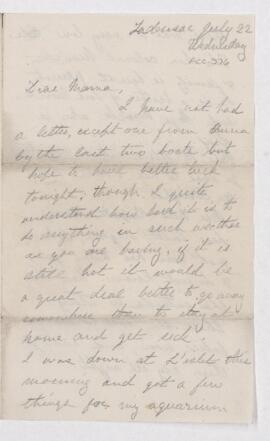 Tadousac July 22
Wednesday
Dear Mama,
I have not had
a letter, except one from Anna
by the last two boats but
hope to have better luck
tonight; though I quite
understand how hard it is to
do anything in such weather
as you are having, if it is
still hot it would be
a great deal better to go away
somewhere than to stay at
home and get sick.
I was down at L'islet this
morning and got a few
things for my aquarium